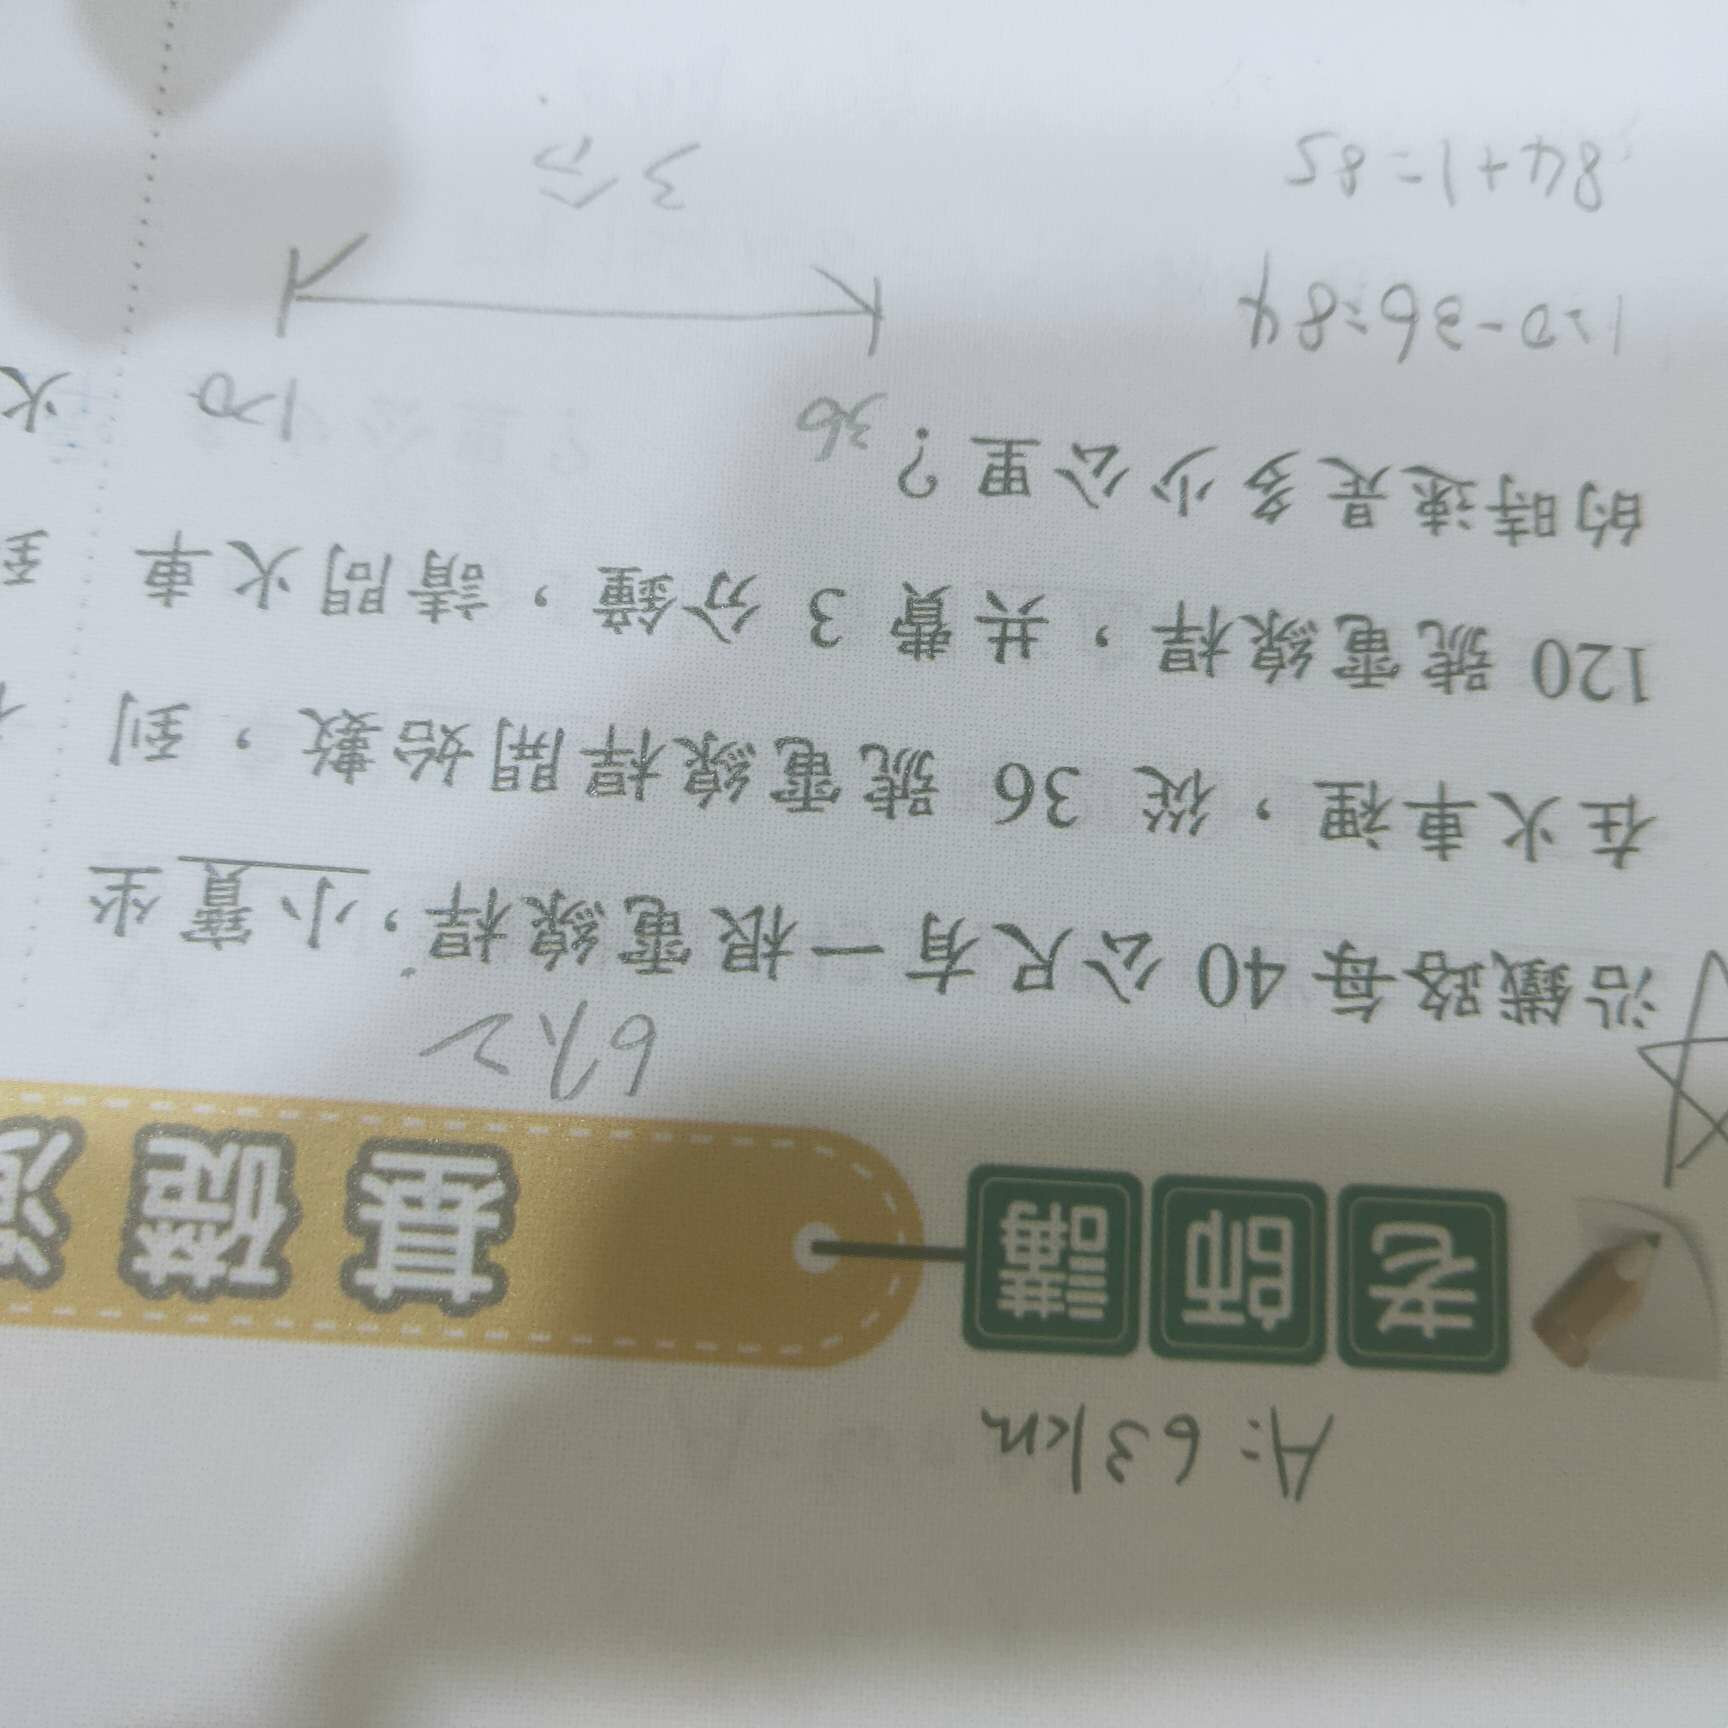 A: 63km
老師講
基礎
沿鐵路每 40 公尺有一根電線桿，小寶坐
在火車裡，從 36 號電線桿開始數，到
120 號電線桿，共費 3 分鐘，請問火車
的時速是多少公里？
36
120
火
120-36=84
84+1=85
3分